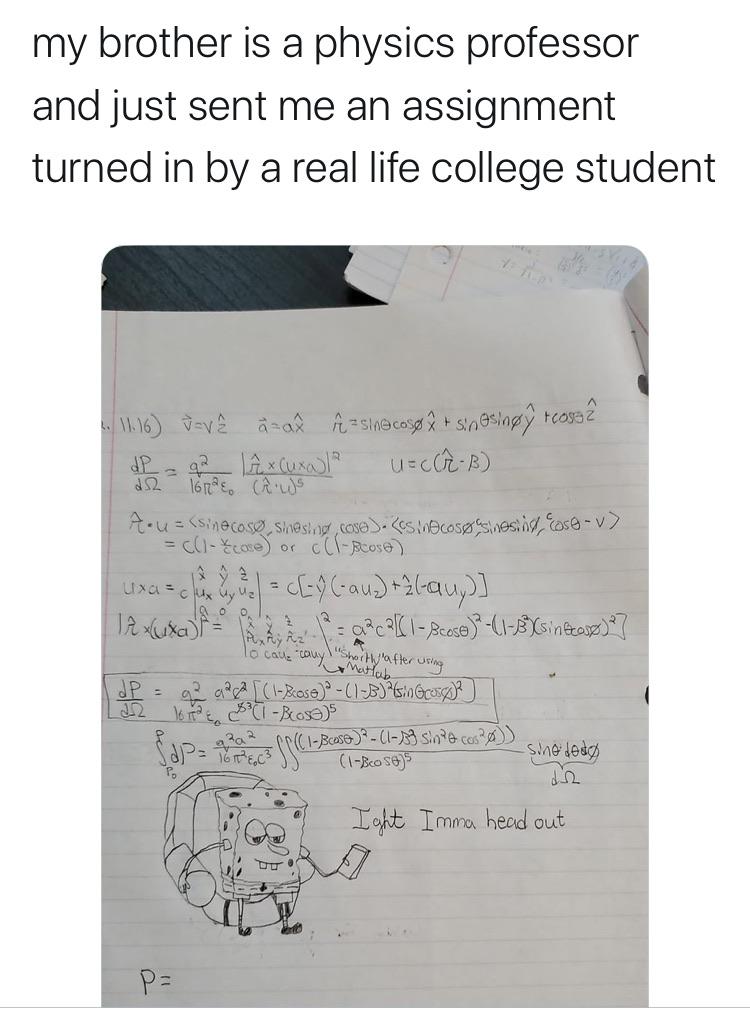 my brother is a physics professor
and just sent me an assignment
turned in by a real life college student
11.16) v⃗=vẑ a⃗=ax̂ r̂=sinθcosø x̂ + sinθsinø ŷ + cosθ ẑ
dP/dΩ = q²/16π²ε₀ |r̂×(u×a)|²/(r̂·u)⁵ u=c(r̂-β)
r̂·u = <sinθcosø, sinθsinø, cosθ>·<csinθcosø, csinθsinø, ccosθ-v>
= c(1-v/c cosθ) or c(1-βcosθ)
u×a = c|x̂ ŷ ẑ; ux uy uz; a 0 0| = c[-ŷ(-auz)+ẑ(-auy)]
|r̂×(u×a)|² = |x̂ ŷ ẑ; r̂x r̂y r̂z; 0 cauz -cauy|² = a²c²[(1-βcosθ)²-(1-β²)(sinθcosø)²]
"Shortly" after using
Matlab
dP/dΩ = q²/16π²ε₀ a²c²[(1-βcosθ)²-(1-β)²(sinθcosø)²]/c⁵³(1-βcosθ)⁵
∫dP = q²a²/16π²ε₀c³ ∫∫((1-βcosθ)²-(1-β²)sin²θcos²ø)/(1-βcosθ)⁵ sinθdθdø
P
P₀
dΩ
Ight Imma head out
P=